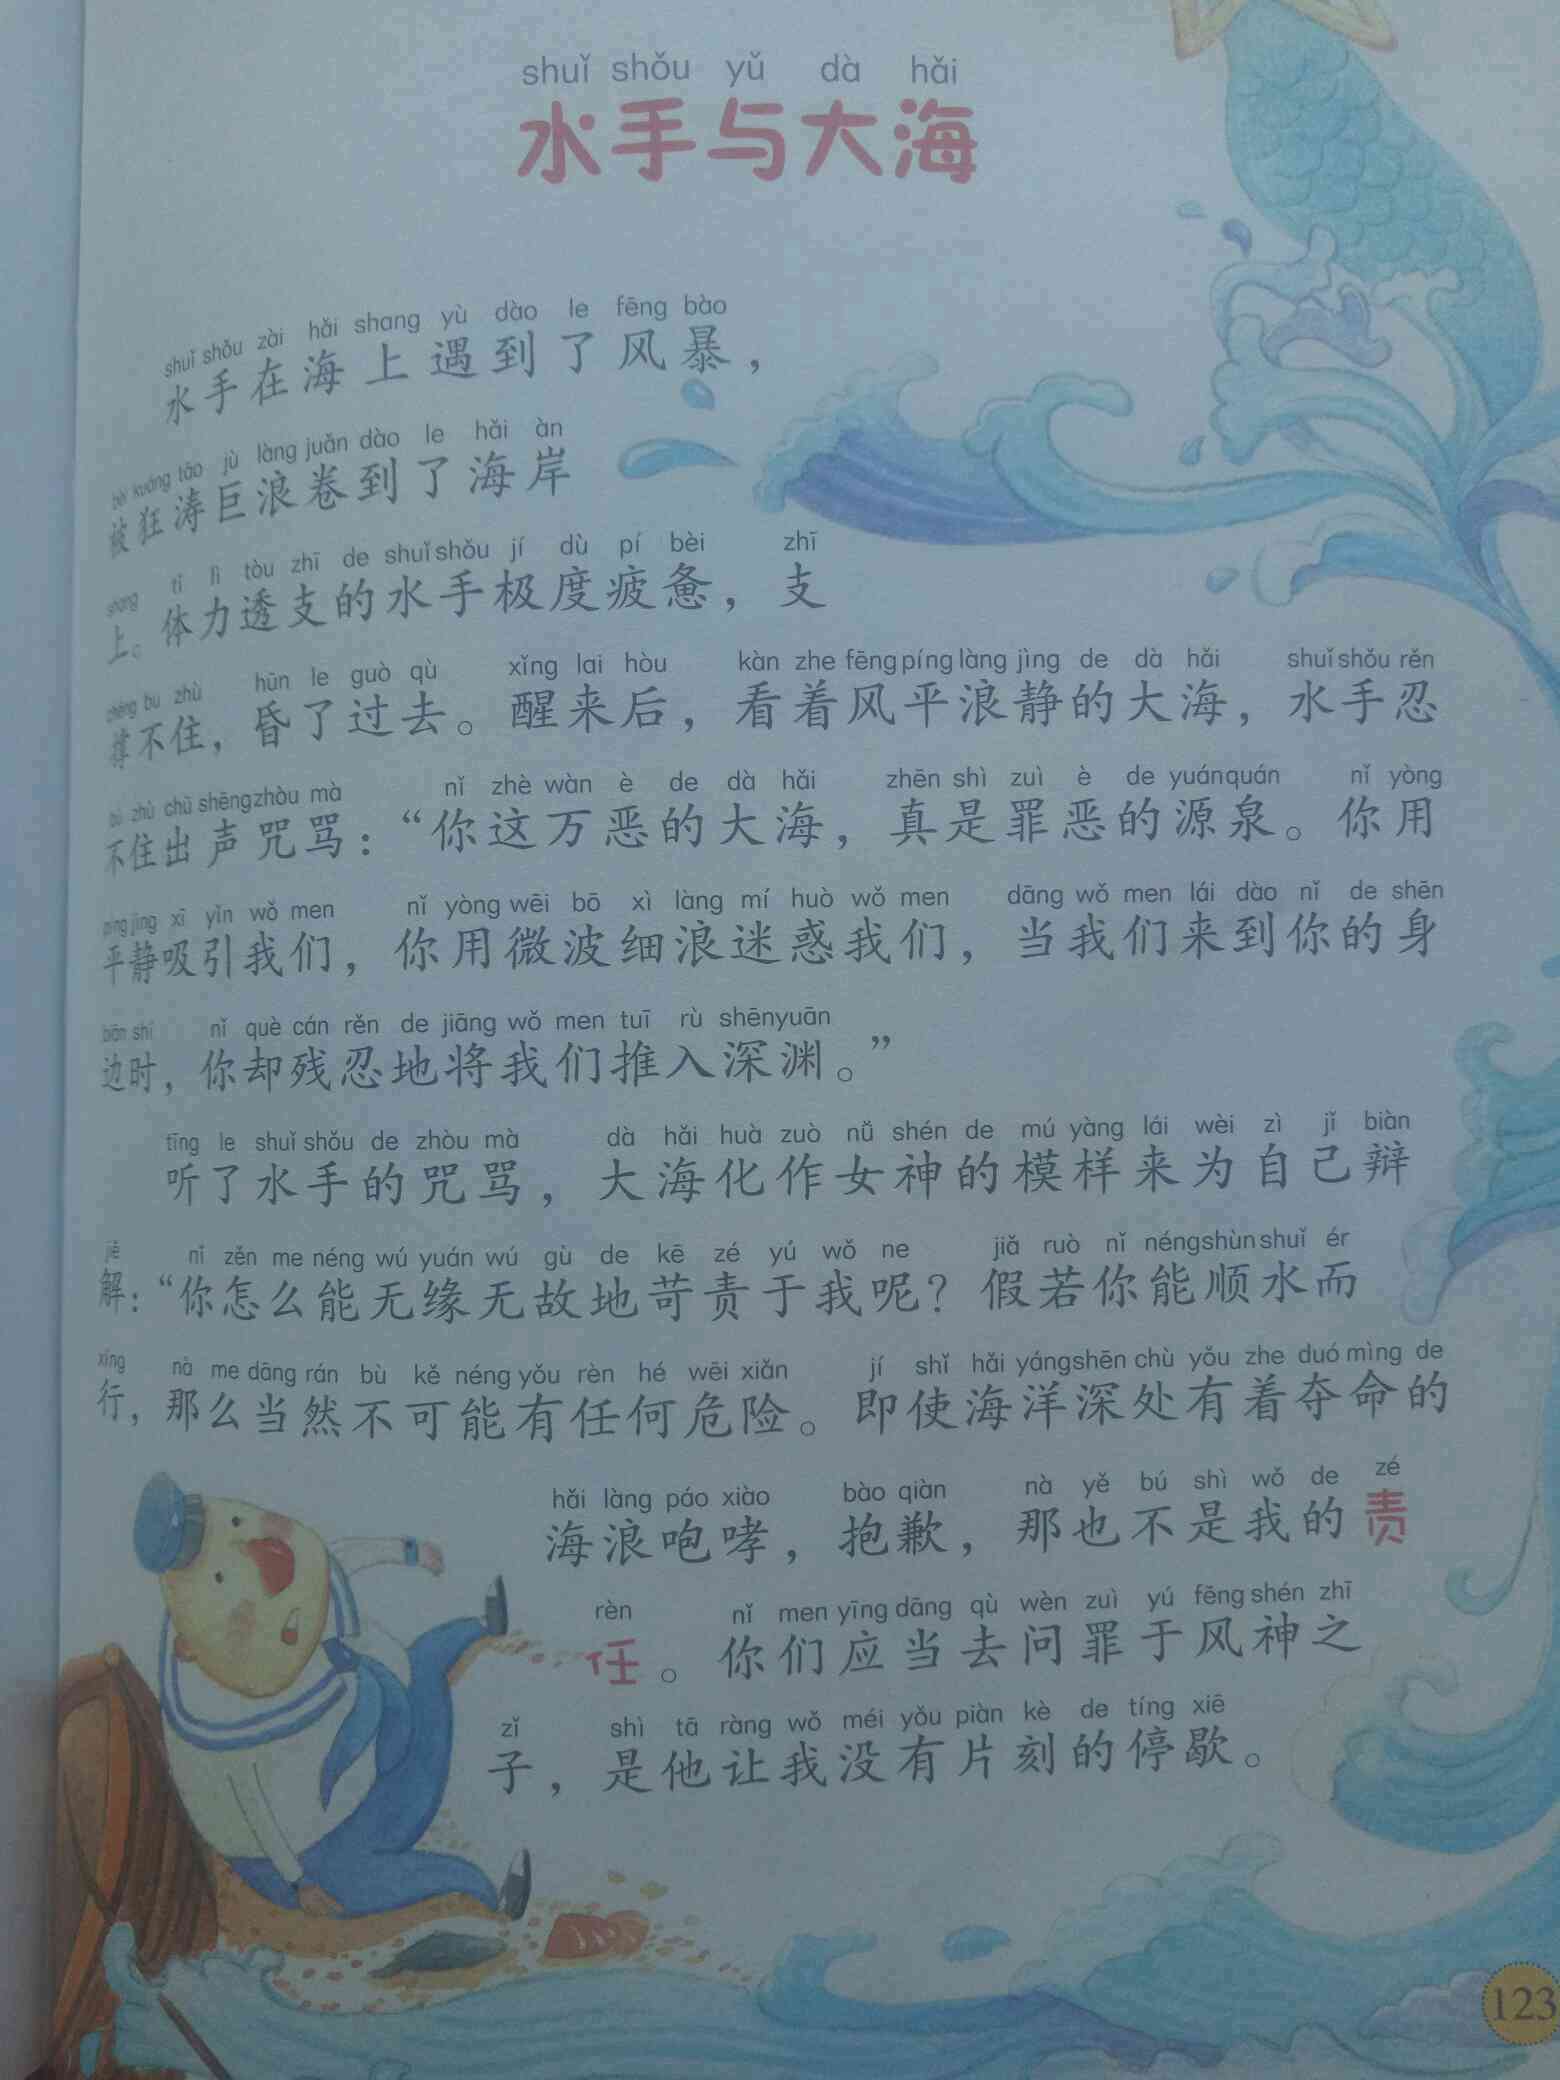 shuǐ shǒu yǔ dà hǎi
水手与大海
shuǐ shǒu zài hǎi shang yù dào le fēng bào
水手在海上遇到了风暴，
bèi kuáng tāo jù làng juǎn dào le hǎi àn
被狂涛巨浪卷到了海岸
shang tǐ lì tòu zhī de shuǐ shǒu jí dù pí bèi zhī
上。体力透支的水手极度疲惫，支
chēng bu zhù hūn le guò qù xǐng lai hòu kàn zhe fēng píng làng jìng de dà hǎi shuǐ shǒu rěn
撑不住，昏了过去。醒来后，看着风平浪静的大海，水手忍
bú zhù chū shēng zhòu mà nǐ zhè wàn è de dà hǎi zhēn shì zuì è de yuán quán nǐ yòng
不住出声咒骂：“你这万恶的大海，真是罪恶的源泉。你用
píng jìng xī yǐn wǒ men nǐ yòng wēi bō xì làng mí huò wǒ men dāng wǒ men lái dào nǐ de shēn
平静吸引我们，你用微波细浪迷惑我们，当我们来到你的身
biān shí nǐ què cán rěn de jiāng wǒ men tuī rù shēn yuān
边时，你却残忍地将我们推入深渊。”
tīng le shuǐ shǒu de zhòu mà dà hǎi huà zuò nǚ shén de mú yàng lái wèi zì jǐ biàn
听了水手的咒骂，大海化作女神的模样来为自己辩
jiě nǐ zěn me néng wú yuán wú gù de kē zé yú wǒ ne jiǎ ruò nǐ néng shùn shuǐ ér
解：“你怎么能无缘无故地苛责于我呢？假若你能顺水而
xíng nà me dāng rán bù kě néng yǒu rèn hé wēi xiǎn jí shǐ hǎi yáng shēn chù yǒu zhe duó mìng de
行，那么当然不可能有任何危险。即使海洋深处有着夺命的
hǎi làng páo xiào bào qiàn nà yě bú shì wǒ de zé
海浪咆哮，抱歉，那也不是我的责
rèn nǐ men yīng dāng qù wèn zuì yú fēng shén zhī
任。你们应当去问罪于风神之
zǐ shì tā ràng wǒ méi yǒu piàn kè de tíng xiē
子，是他让我没有片刻的停歇。
123